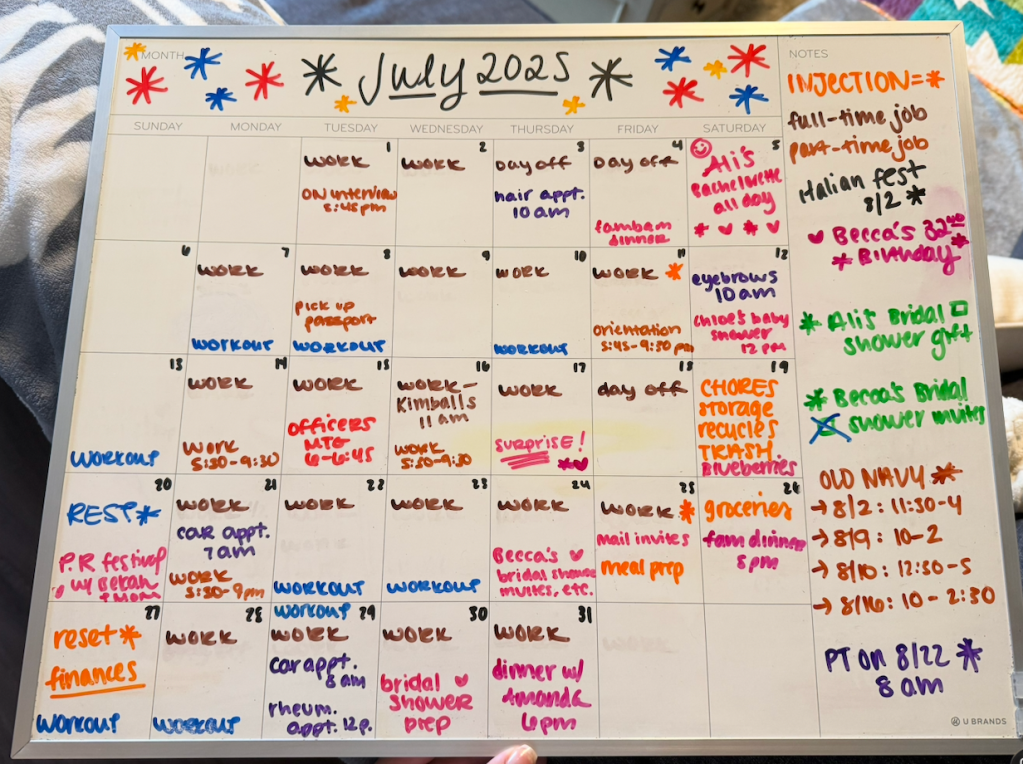 MONTH
July 2025
SUNDAY MONDAY TUESDAY WEDNESDAY THURSDAY FRIDAY SATURDAY
1
WORK
ON interview
5:45pm
2
WORK
3
Day off
hair appt.
10 am
4
Day off
fambam
dinner
5
Ali's
Bachelorette
all day
6
7
WORK
WORKOUT
8
WORK
pick up
passport
WORKOUT
9
WORK
10
WORK
WORKOUT
11
WORK
orientation
5:45-9:30 pm
12
eyebrows
10 am
Chloe's baby
shower
12 pm
13
WORKOUT
14
WORK
WORK
5:30-9:30
15
WORK
OFFICERS
MTG
6-6:45
16
WORK-
Kimballs
11 am
WORK
5:30-9:30
17
WORK
SURPRISE!
18
day off
19
CHORES
storage
recycles
TRASH
Blueberries
20
REST
P.R festival
w/ Bekah
+ MOM
21
WORK
car appt.
7am
WORK
5:30-9pm
22
WORK
WORKOUT
23
WORK
WORKOUT
24
WORK
Becca's
bridal shower
invites, etc.
25
WORK
mail invites
meal prep
26
groceries
fam dinner
5pm
27
reset
finances
WORKOUT
28
WORK
WORKOUT
29
WORKOUT
WORK
car appt.
8 am
rheum.
appt. 12p.
30
WORK
bridal
SHOWER
prep
31
WORK
dinner w/
Amanda
6pm
NOTES
INJECTION=*
full-time job
part-time job
Italian fest
8/2 *
Becca's 32nd
* Birthday
* Ali's Bridal
shower gift
* Becca's Bridal
shower invites
OLD NAVY *
→ 8/2: 11:30-4
→ 8/9: 10-2
→ 8/10: 12:30-5
→ 8/16: 10-2:30
PT ON 8/22 *
8 am
U BRANDS